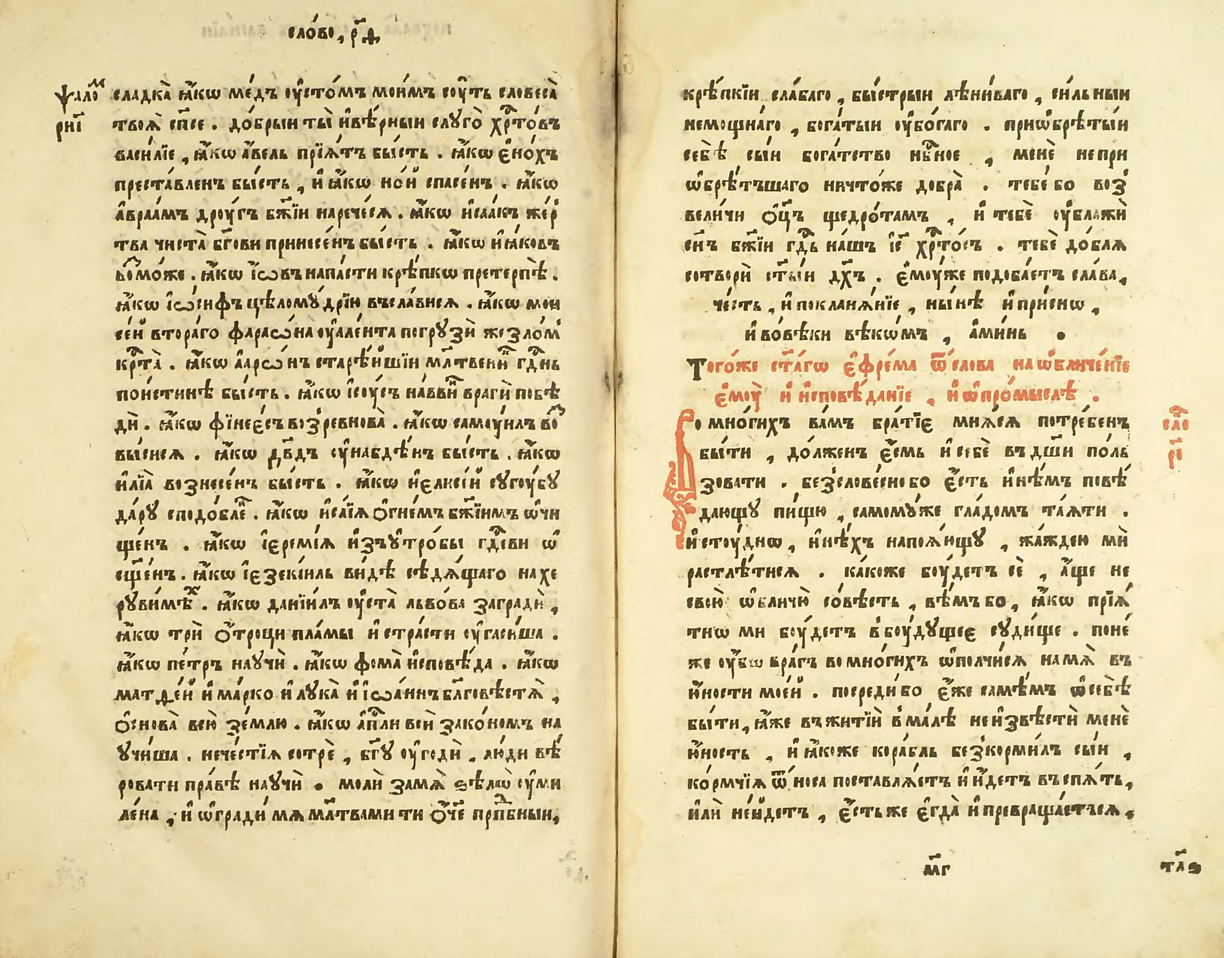 сло́во, р҃д,
ѱало м
риі҃
сладка̀ ꙗ҆́кѡ ме́дъ ᲂу҆сто́мъ мои́мъ сᲂу́ть словеса̀
твоѧ̀ сп҃се . до́брыи ты̀ и҆ вѣ́рныи слуго̀ хр҃то́въ
васи́лїе , ꙗ҆́кѡ а҆́вель прїѧ́тъ бы́сть . ꙗ҆́кѡ є҆но́хъ
преста́вленъ бы́сть , и҆ ꙗ҆́кѡ но́и спасе́нъ . ꙗ҆́кѡ
а҆враа́мъ дрᲂу́гъ бж҃їи нарече́сѧ . ꙗ҆́кѡ и҆саа́къ жер
тва чиста̀ бг҃ови принесе́нъ бы́сть . ꙗ҆́кѡ и҆ꙗ́ковъ
во́може . ꙗ҆́кѡ і҆́ѡвъ напа́сти крѣ́пкѡ претерпѣ̀ .
ꙗ҆́кѡ і҆ѡ́сифъ цѣломꙋ́дрїи въсла́висѧ . ꙗ҆́кѡ мои
се́и втора́го фараѡ́на ᲂу҆але́нта погрузѝ жезло́м
кр҃та̀ . ꙗ҆́кѡ а҆арѡ́нъ старѣ́ишїи мл҃твени гд҃нь
пои́стинѣ бы́сть . ꙗ҆́кѡ і҆сᲂу́съ на́ввїи врагѝ побѣ
дѝ . ꙗ҆́кѡ фїнее́съ возревнова̀ . ꙗ҆́кѡ самᲂуи́лъ во
вы́сисѧ . ꙗ҆́кѡ дв҃дъ сᲂунабдѣ́нъ бы́сть . ꙗ҆́кѡ
и҆лїа̀ вознесе́нъ бы́сть . ꙗ҆́кѡ и҆елисе́и сугᲂу́бу
да́ру сподо́бле . ꙗ҆́кѡ и҆са́їѧ ѻ҆гне́мъ бж҃їимъ ѡ҆чи
ще́нъ . ꙗ҆́кѡ і҆еремі́ѧ и҆зъꙋтро́бы гд҃еви ѡ҆
сще́нъ . ꙗ҆́кѡ і҆езекі́иль ви́дѣ сѣдѧ́щаго на хе
рꙋви́мѣ х . ꙗ҆́кѡ данїи́лъ ᲂу҆ста̀ льво́ва заградѝ ,
ꙗ҆́кѡ трѝ ѻ҆́троцы пла́мы и҆ стра́сти ᲂу҆гаси́ша .
ꙗ҆́кѡ пе́тръ наᲂучѝ . ꙗ҆́кѡ фома̀ и҆сповѣ́да . ꙗ҆́кѡ
матѳе́и и҆ ма́рко и҆ лᲂука̀ и҆ і҆ѡа́ннъ бл҃говѣстѧ̀ ,
ѻ҆снова̀ всю̀ зе́млю . ꙗ҆́кѡ а҆п҃ли всѝ зако́номъ на
ꙋчи́ша . нече́стїѧ сотрѐ , бг҃у ᲂу҆годѝ , лю́ди вѣ́
ровати пра́вѣ наᲂучѝ . молѝ за мѧ̀ ѕѣлѡ̀ сᲂуми
ле́на , и҆ ѡ҆градѝ мѧ мл҃твами ти ѻ҆́ч҃е прп҃бныи,
крѣ́пкїи сла́баго , бы́стрыи лѣни́ваго , си́льныи
немощна́го , бога́тыи ᲂу҆бо́гаго . прїѡбрѣ́тыи
себѣ̀ сы́и бога́тство нб҃ное , менѐ непри
ѡ҆брѣ́тъшаго ничто́же добра̀ . тебе́ бо воз
вели́чи ѻ҆ц҃ъ щедро́тамъ , и҆ тебѐ ᲂу҆блажѝ
сн҃ъ бж҃їи гд҃ь на́шъ і҆с҃ хр҃то́съ . тебѐ до́блѧ
сотворѝ ст҃ы́и дх҃ъ . є҆мᲂу́же подоба́етъ сла́ва,
че́сть , и҆ поклонѧ́нїе , ны́нѣ и҆ при́снѡ ,
и҆ во вѣ́ки вѣкѡ́мъ , а҆ми́нь .
Того́же ст҃а́гѡ є҆фре́ма ѿ сло́ва на ѡ҆бличе́нїе
є҆мᲂу̀ и҆ и҆сповѣ́данїе , и҆ ѡ҆ про́мыслѣ .
сло
рі҃
Со мно́гихъ ва́мъ бра́тїе мнѧ́сѧ потре́бенъ
бы́ти , до́лженъ є҆́смь и҆ себѐ въ дш҃и по́ль
зовати . безслове́сно бо є҆́сть и҆нѣ́мъ повѣ́
дающꙋ пи́щю , самомꙋ́же гла́домъ та́ѧти .
и҆ стᲂу́днѡ, и҆нѣ́хъ напоѧ́ющꙋ , жа́ждею ми
растлѣ́тисѧ . ка́коже бᲂу́детъ сѐ , а҆́ще не
свою̀ ѡ҆бличю̀ со́вѣсть , вѣ́мъ бо, ꙗ҆́кѡ прїѧ́
тнѡ ми бᲂу́детъ в бᲂу́дꙋщее сꙋди́ще . поне́
же ᲂу҆́бѡ вра́гъ во мно́гихъ ѡ҆полчи́сѧ на мѧ̀ въ
ю҆́ности мое́и . посредѝ бо є҆́же самѣ́мъ ѿ себѣ̀
бы́ти, ꙗ҆́же въ житїѝ в ма́лѣ не и҆звѣстѝ менѐ
ю҆́ность , и҆ ꙗ҆́коже кора́бль безкорми́лъ сы́и ,
ко́рмчїѧ ѿ но́са поставлѧ́етъ и҆ и҆́детъ въспѧ́ть,
и҆лѝ нейдетъ , є҆́сть же є҆гда̀ и҆ превраща́етъсѧ ,
мг҃
тл҃ѕ